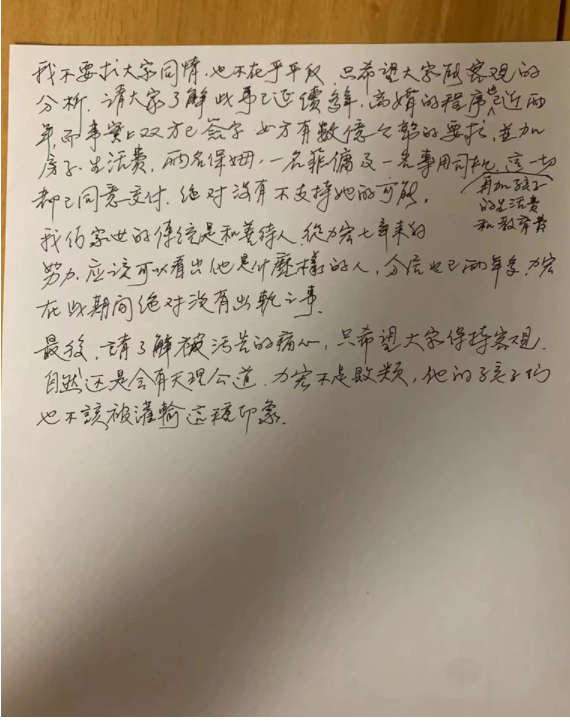 我不要求大家同情,也不在乎平反,只希望大家能客观的
分析.請大家了解此事已延續多年,离婚的程序也已近两
年,而事實上双方已簽字 女方有數億的要求,並加
房子.生活費,两名保姆,一名菲傭及一名專用司机,這一切
再加孩子的生活費和教育費
都已同意交付.絕对沒有不支持她的可能.
我们家世的傳統是和善待人,從力宏七年來的
努力,应該可以看出他是什麼樣的人,分居也已两年多,力宏
在此期间絕对沒有出軌之事.
最後,請了解被污告的痛心,只希望大家保持客观.
自然还是会有天理公道.力宏不是敗類,他的孩子们
也不該被灌輸這種印象.